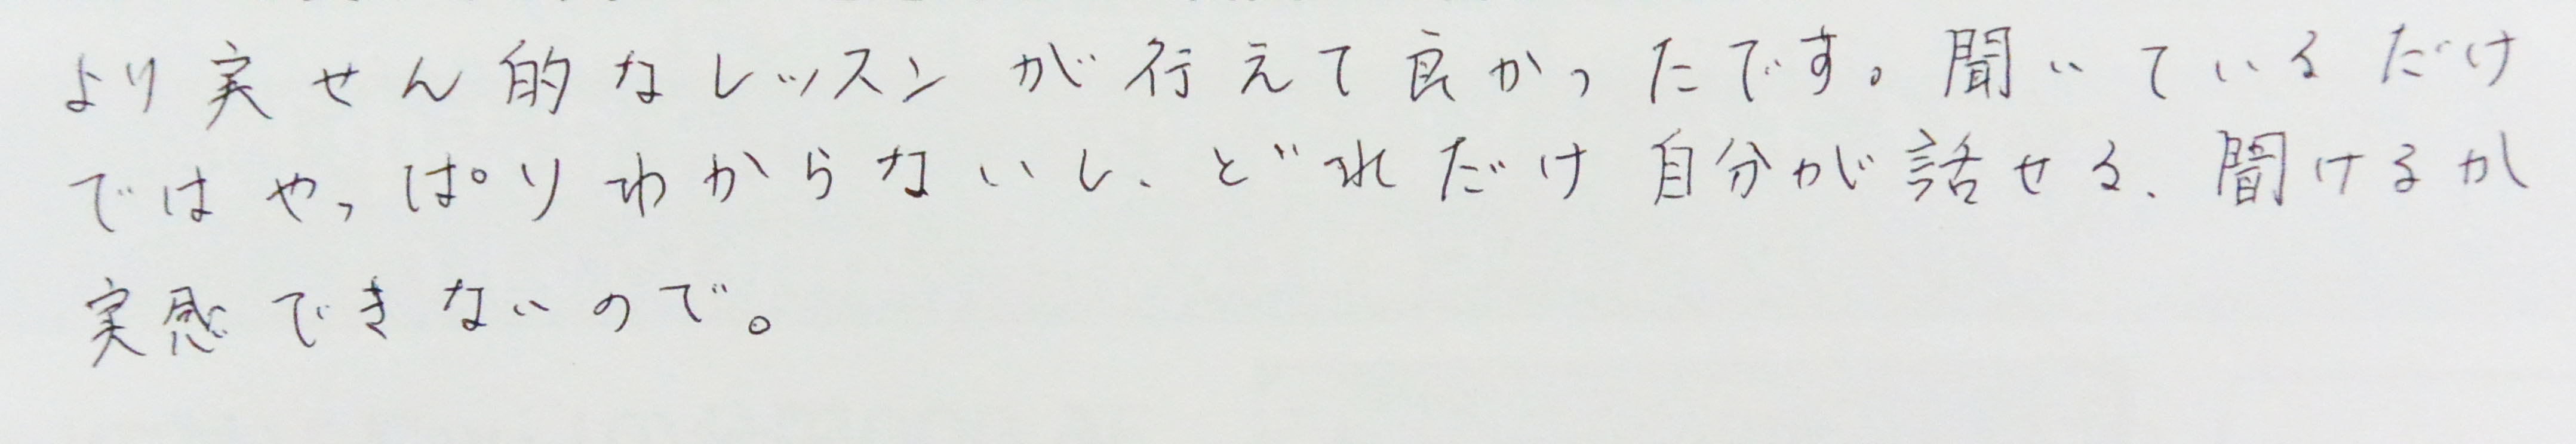 より実せん的なレッスンが行えて良かったです。聞いているだけ
ではやっぱりわからないし、どれだけ自分が話せる、聞けるか
実感できないので。